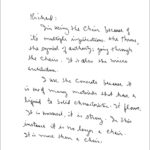 Richard:
I'm using the Chair because of
its multiple implications. The Throne,
the symbol of authority; going through
the Chairs. It is also the
I use the Concrete because it
is one of many materials that have a
liquid to solid characteristic. It flows.
It is poured, it is strong. In this
instance it is no longer a Chair.
It is more than a Chair.